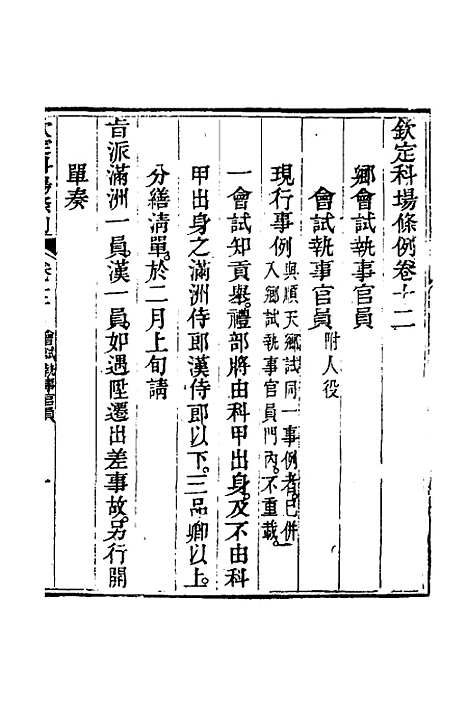 欽定科場條例卷十二
鄉會試執事官員
會試執事官員附人役
現行事例與順天鄉試同一事例者。已併
入鄉試執事官員門內。不重載。
一會試知貢舉。禮部將由科甲出身。及不由科
甲出身之滿洲侍郎漢侍郎以下。三品卿以上。
分繕清單。於二月上旬請
旨派滿洲一員。漢一員。如遇陞遷出差事故。另行開
單奏
會試執事官員